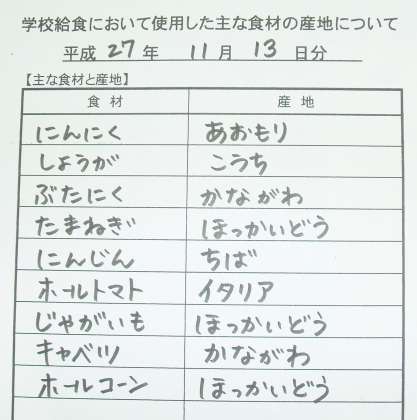 学校給食において使用した主な食材の産地について
平成 27 年 11 月 13 日分
【主な食材と産地】
食材 産地
にんにく あおもり
しょうが こうち
ぶたにく かながわ
たまねぎ ほっかいどう
にんじん ちば
ホールトマト イタリア
じゃがいも ほっかいどう
キャベツ かながわ
ホールコーン ほっかいどう